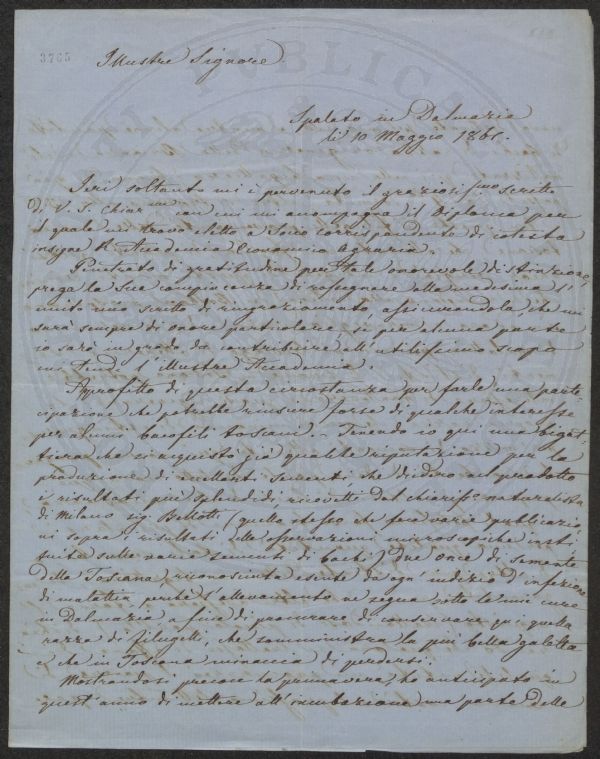 3765
Illustre Signore
Spalato in Dalmazia
li 10 Maggio 186
Jeri soltanto mi è pervenuto il graziosissmo scritto
di V. S. Chiarma con cui mi accompagna il Diploma per
il quale mi trovo eletto a Socio corrispondente di cotesta
insigne R. Accademia Economico Agraria.
Penetrato di gratitudine per tale onorevole distinzione,
prego la Sua compiacenza di rassegnare alla medesima l'
unito mio scritto di ringraziamento, assicurandola che mi
sarà sempre di onore particolare, se per alcuna parte
io sarò in grado di contribuire all'utilissimo scopo
cui tende l'illustre Accademia.
Approfitto di questa circostanza per farle una parte
cipazione che potrebbe riuscire forse di qualche interesse
per alcuni bacofili toscani. Tenendo io qui una bigat
tiera che si acquistò già qualche riputazione per la
produzione di eccellenti sementi che diedero al prodotto
i risultati più splendidi, ricevetti dal chiariss.o naturalista
di Milano sig. Bellotti (quello stesso che fece varie pubblicazio
ni sopra i risultati delle osservazioni microscopiche insti
tuite sulle varie sementi di bachi) due once di semente
della Toscana, riconosciuta esente da ogni indizio d'infezione
di malattia, perchè l'allevamento ne segua sotto le mie cure
in Dalmazia a fine di procurare di conservare poi quella
razza di filugelli, che somministra la più bella galetta
e che in Toscana minaccia di perdersi.
Mostrandosi precoce la primavera, ho anticipato in
quest'anno di mettere all'incubazione una parte delle